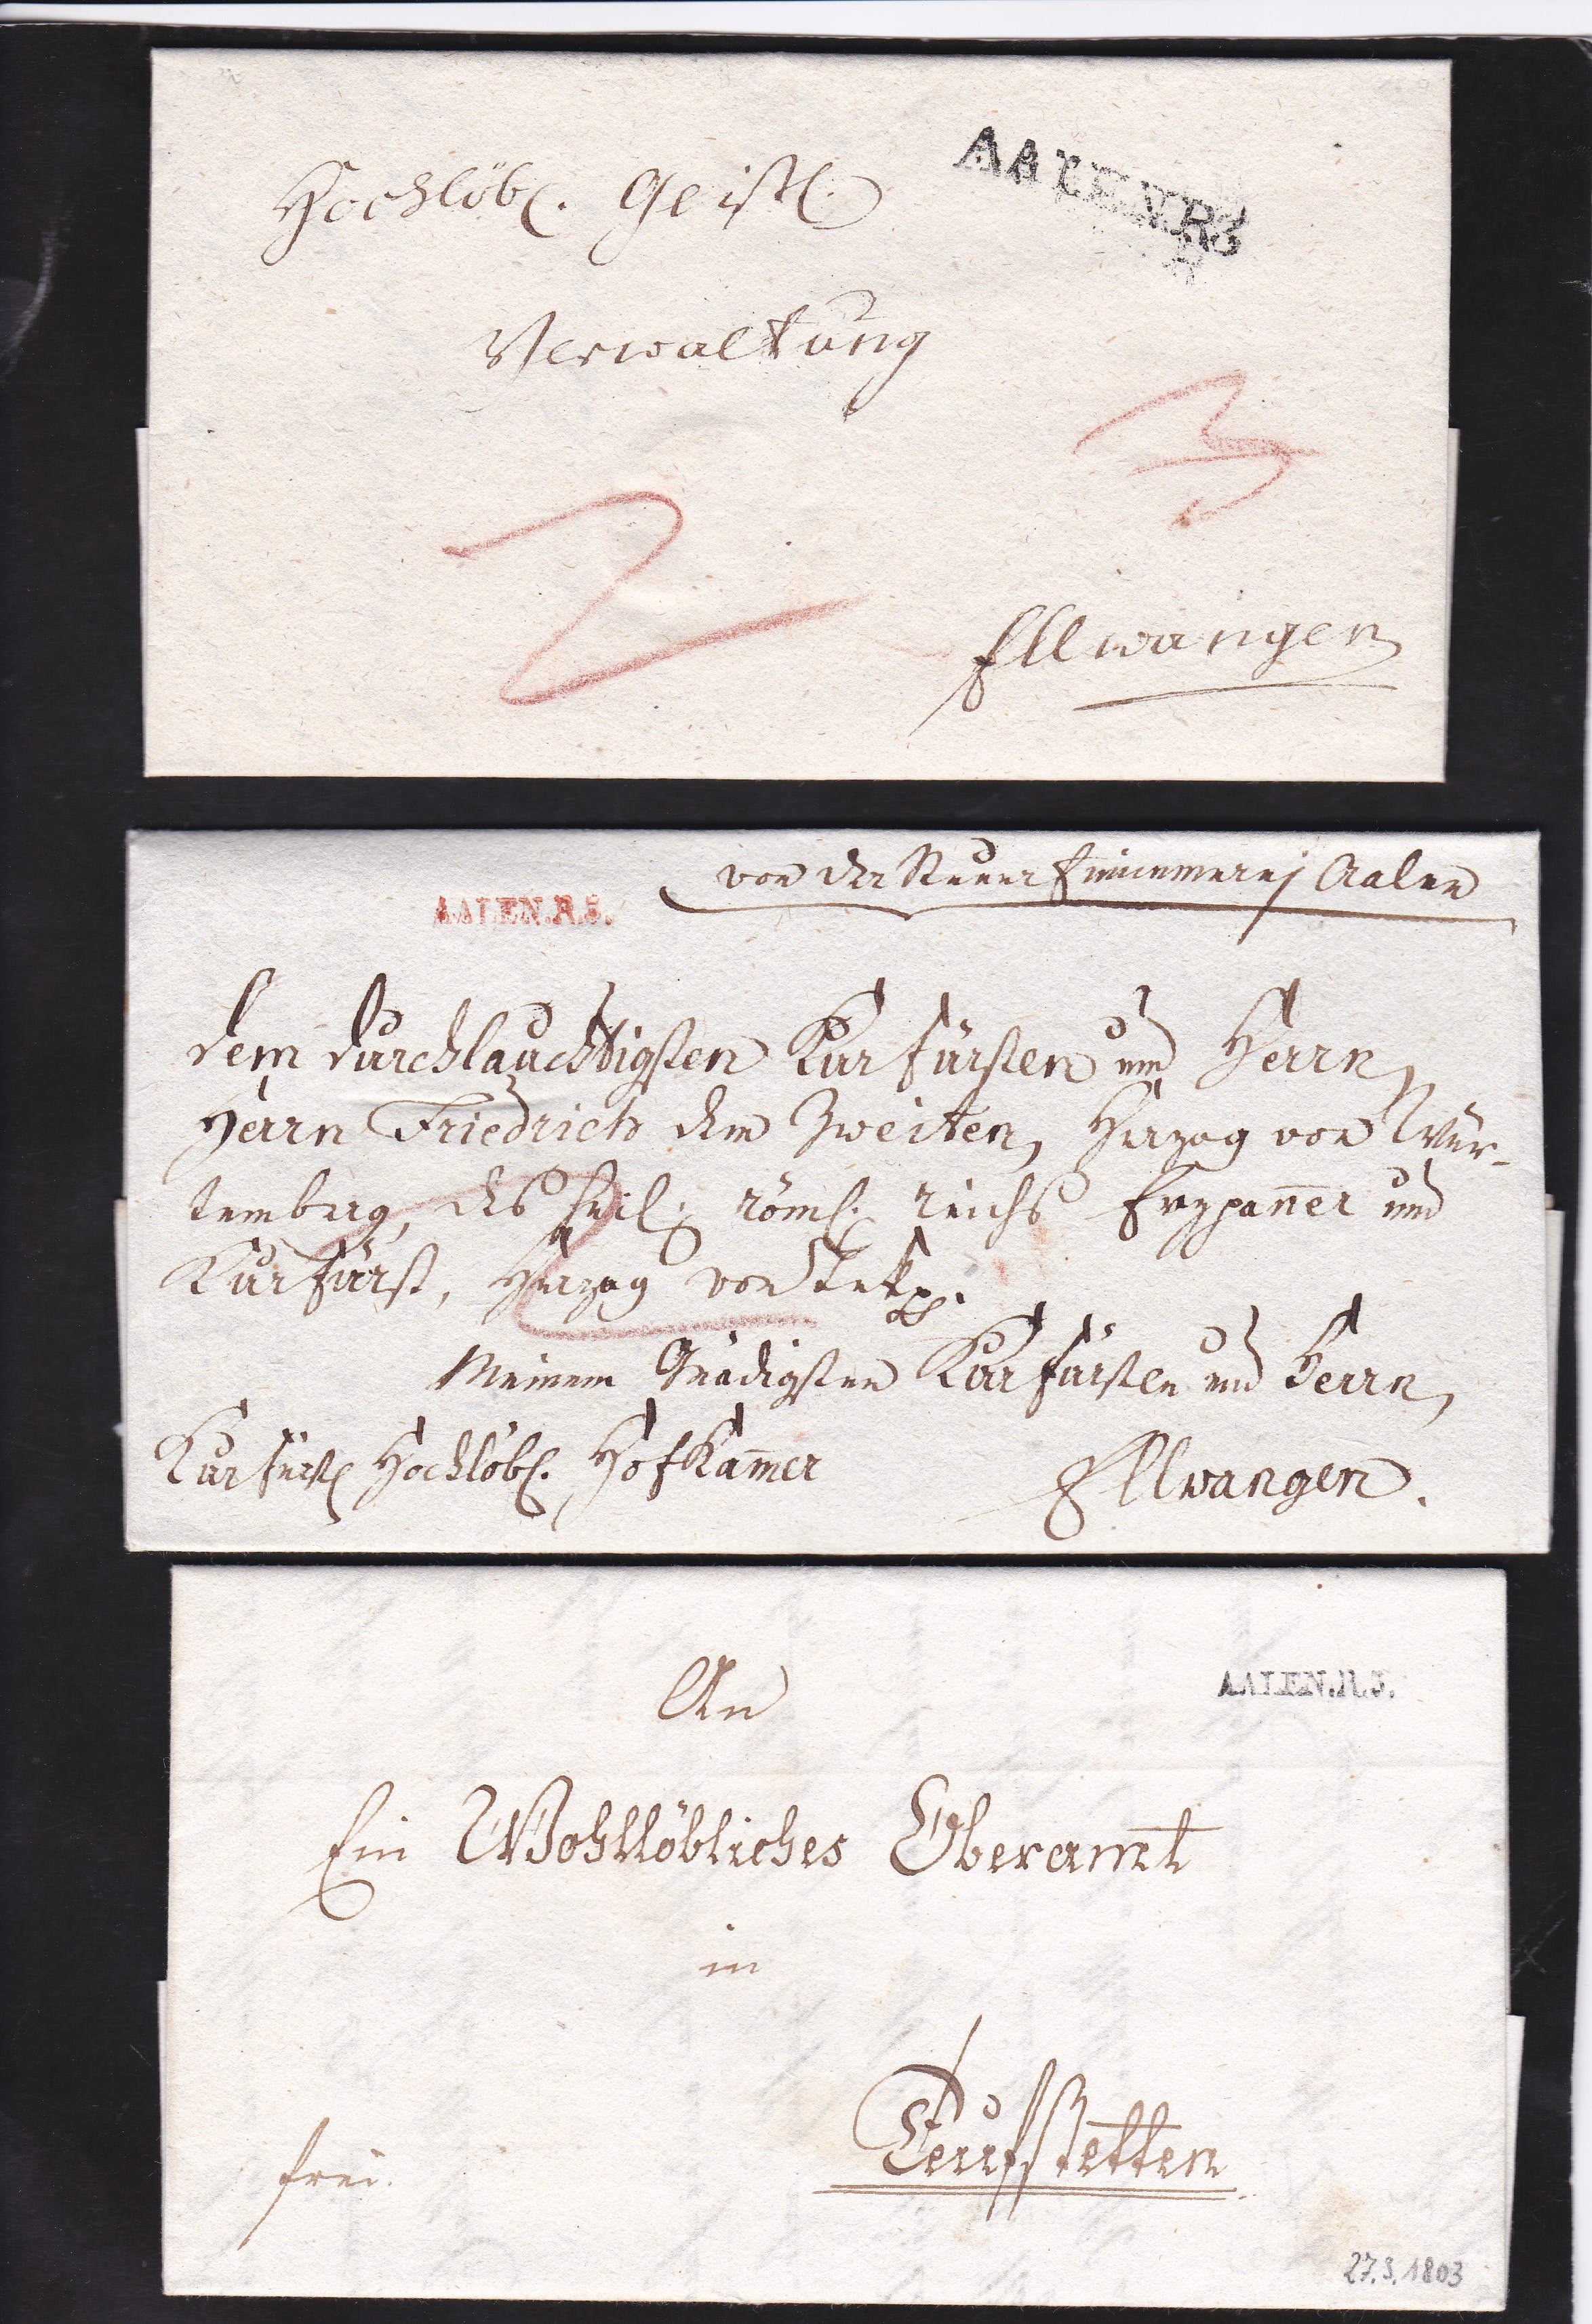 Hochlöbl. Geistl.
AALEN.R3
Verwaltung
3
2
Ellwangen
von der Steuer Einnemerej Aalen
AALEN.R.3.
Dem Durchlauchtigsten Kurfürsten und Herrn,
Herrn Friedrich dem Zweiten, Herzog von Wür-
temberg, des heil. röml. reichs Erzpan̅er und
Kurfürst, Herzog von Tek
2
Meinem Gnädigsten Kurfürsten und Herrn,
Kurfürstl Hochlöbl. Hofkam̅er
Ellwangen.
An
AALEN.R.3.
Ein Wohllöbliches Oberamt
in
Teufstetten
frei.
27.3.1803